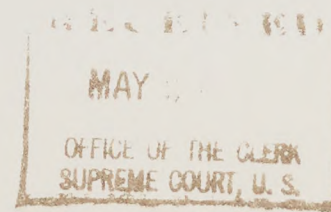 MAY
OFFICE OF THE CLERK
SUPREME COURT, U. S.